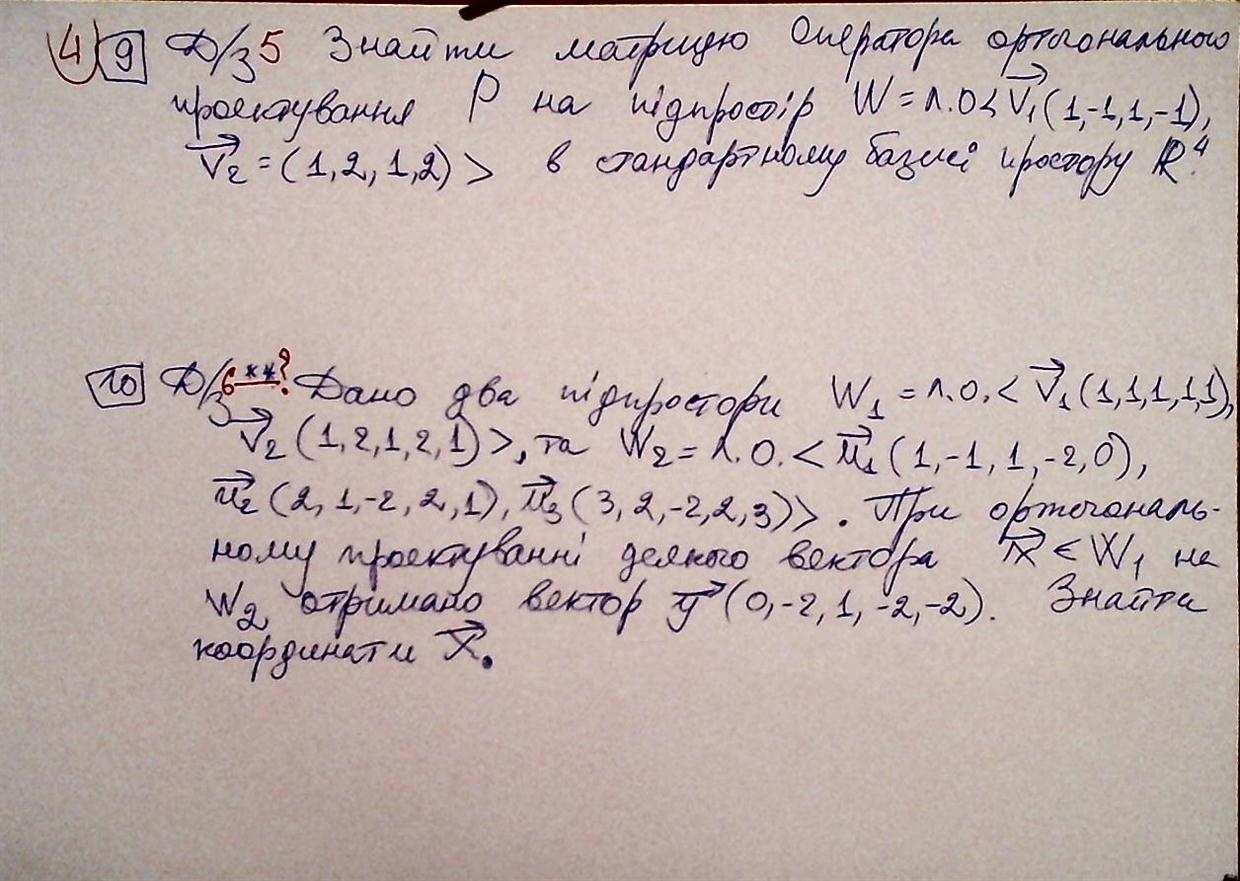 4 9 Д/з 5 Знайти матрицю оператора ортогонального
проектування P на підпростір W = л.о < v₁(1,-1,1,-1),
v₂ = (1,2,1,2) > в стандартному базисі простору ℝ⁴.
10 Д/з 6 **? Дано два підпростори W₁ = л.о. < v₁(1,1,1,1,1),
v₂(1,2,1,2,1) >, та W₂ = л.о. < u₁(1,-1,1,-2,0),
u₂(2,1,-2,2,1), u₃(3,2,-2,2,3) >. При ортогональ-
ному проектуванні деякого вектора x ∈ W₁ на
W₂ отримано вектор y(0,-2,1,-2,-2). Знайти
координати x.